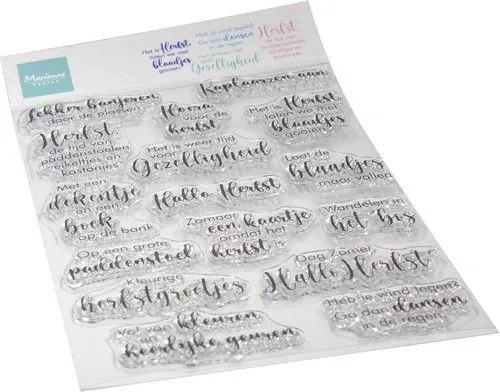 Marianne
DESIGN
Het is Herfst
laten we met
blaadjes
gooien
Heb je wind tegen?
Ga dan dansen
in de regen
Het is weer tijd
voor
Gezelligheid
Herfst
de tijd van
paddenstoelen
eikeltjes en
kastanjes
Lekker banjeren
door de plassen
Hoera
voor de
herfst
Kaplaarzen aan
Herfst,
de tijd van
paddenstoelen
eikeltjes en
kastanjes
Het is weer tijd
voor
Gezelligheid
Het is Herfst
laten we met
blaadjes
gooien
Met een
dekentje
en een
boek
op de bank
Hallo Herfst
Laat de
blaadjes
maar vallen
Zomaar
een kaartje
omdat het
herfst is
Wandelen in
het bos
Op een grote
paddenstoel
Kleurige
herfstgroetjes
Dag Zomer
Hallo Herfst
vol van kleuren
en
heerlijke geuren
Heb je wind tegen?
Ga dan dansen
in de regen